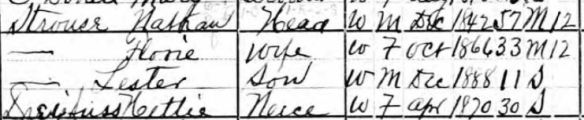 Strouse Nathan Head W M Dec 1842 57 M 12
— Florie Wife W F Oct 1866 33 M 12
— Lester Son W M Dec 1888 11 S
Dreifuss Nettie Neice W F Apr 1870 30 S